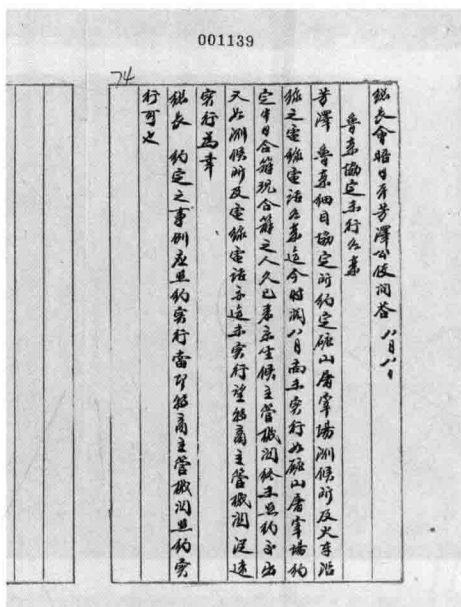 001139
74
總長會晤日本芳澤公使問答 八月八日
魯案協定未行各案
芳澤 魯案細目協定所約定礦山屠宰場測候所及火車沿
線之電線電話各案迄今時閱八月尚未實行如礦山屠宰場約
定中日合辦現合辦之人久已來京坐候主管機關終未照約
又如測候所及電線電話亦迄未實行望轉商主管機關從速
實行為幸
總長 約定之事例應照約實行當即轉商主管機關照約實
行可也